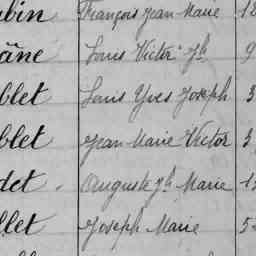 ubin François Jean Marie 12
âne Louis Victor Jh 9
blet Louis Yves Joseph 3
blet Jean Marie Victor 3
det Auguste Jh Marie 1
llet Joseph Marie 5